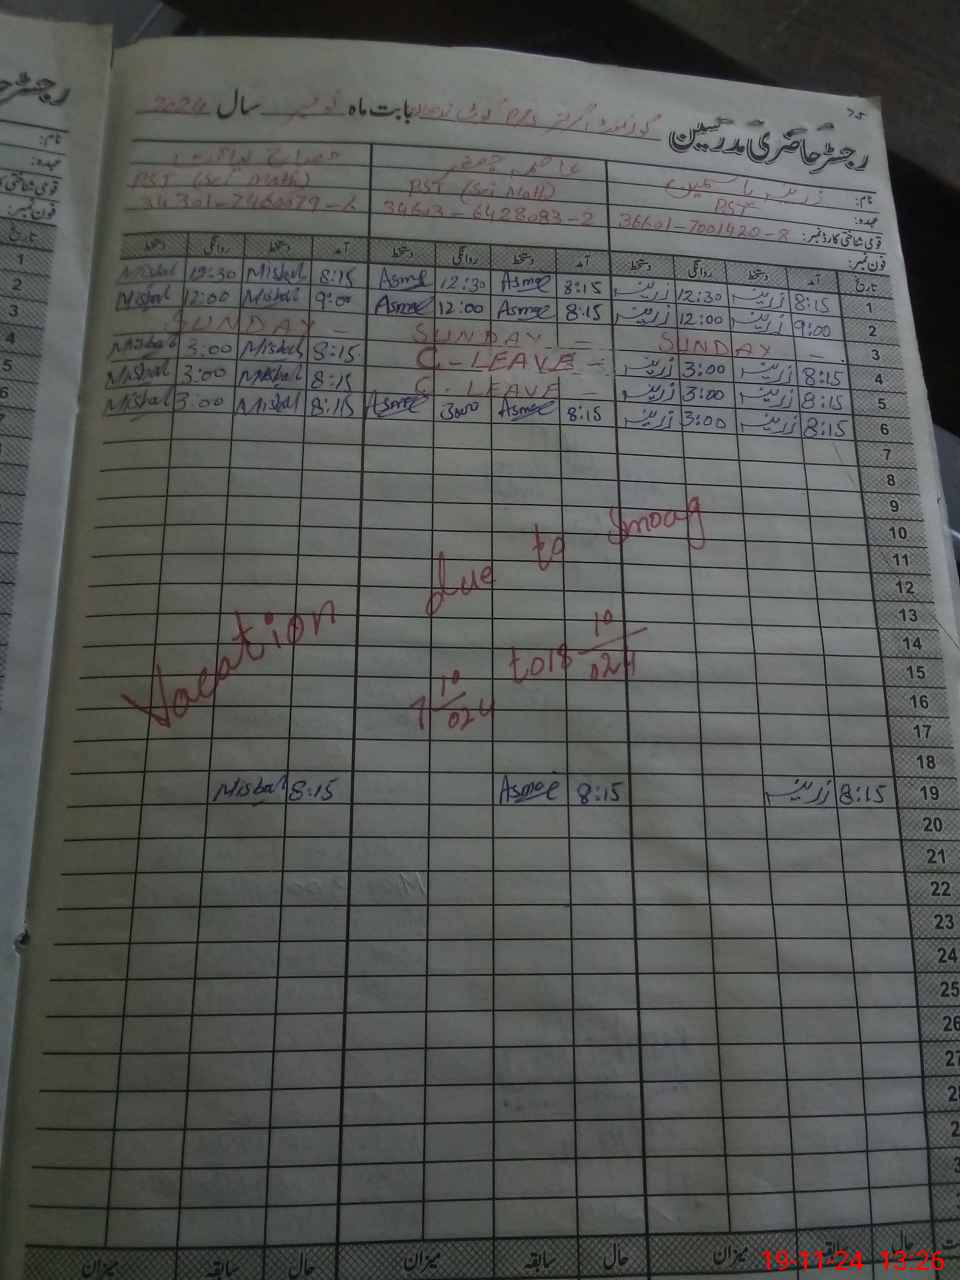 رجسٹر حاضری مدرسین بابت ماہ نومبر سال 2024
نام: زرینہ یاسمین
عہدہ: PST PST (Sci Math) PST (Sci Math)
قومی شناختی کارڈ نمبر: 36601-7001420-8 34603-6428093-2 34301-7460079-6
فون نمبر:
تاریخ آمد دستخط روانگی دستخط آمد دستخط روانگی دستخط آمد دستخط روانگی دستخط
1 8:15 زرینہ 12:30 زرینہ 8:15 Asma 12:30 Asma 8:15 Misbal 12:30 Misbal
2 9:00 زرینہ 12:00 زرینہ 8:15 Asma 12:00 Asma 9:00 Misbal 12:00 Misbal
3 SUNDAY - SUNDAY - SUNDAY -
4 8:15 زرینہ 3:00 زرینہ C-LEAVE - 8:15 Misbal 3:00 Misbal
5 8:15 زرینہ 3:00 زرینہ C-LEAVE - 8:15 Misbal 3:00 Misbal
6 8:15 زرینہ 3:00 زرینہ 8:15 Asma 3:00 Asma 8:15 Misbal 3:00 Misbal
7
8
9
10
11
12
13
14
15
16
17
18
Vacation due to Smoag
7 10/024 to 18 10/024
19 8:15 زرینہ 8:15 Asma 8:15 Misbal
20
21
22
23
24
25
26
27
حال سابقہ میزان حال سابقہ میزان حال سابقہ میزان
19-11-24 13:26